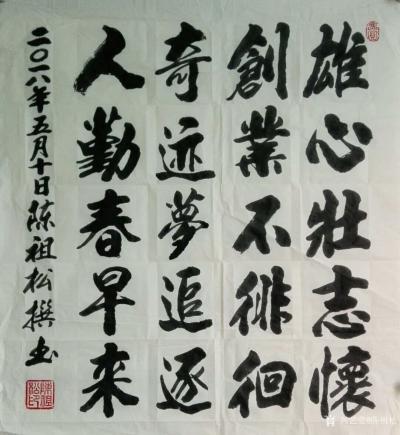 雄心壯志懷
創業不徘徊
奇迹夢追逐
人勤春早來
二〇一六年五月十日陈祖松撰书